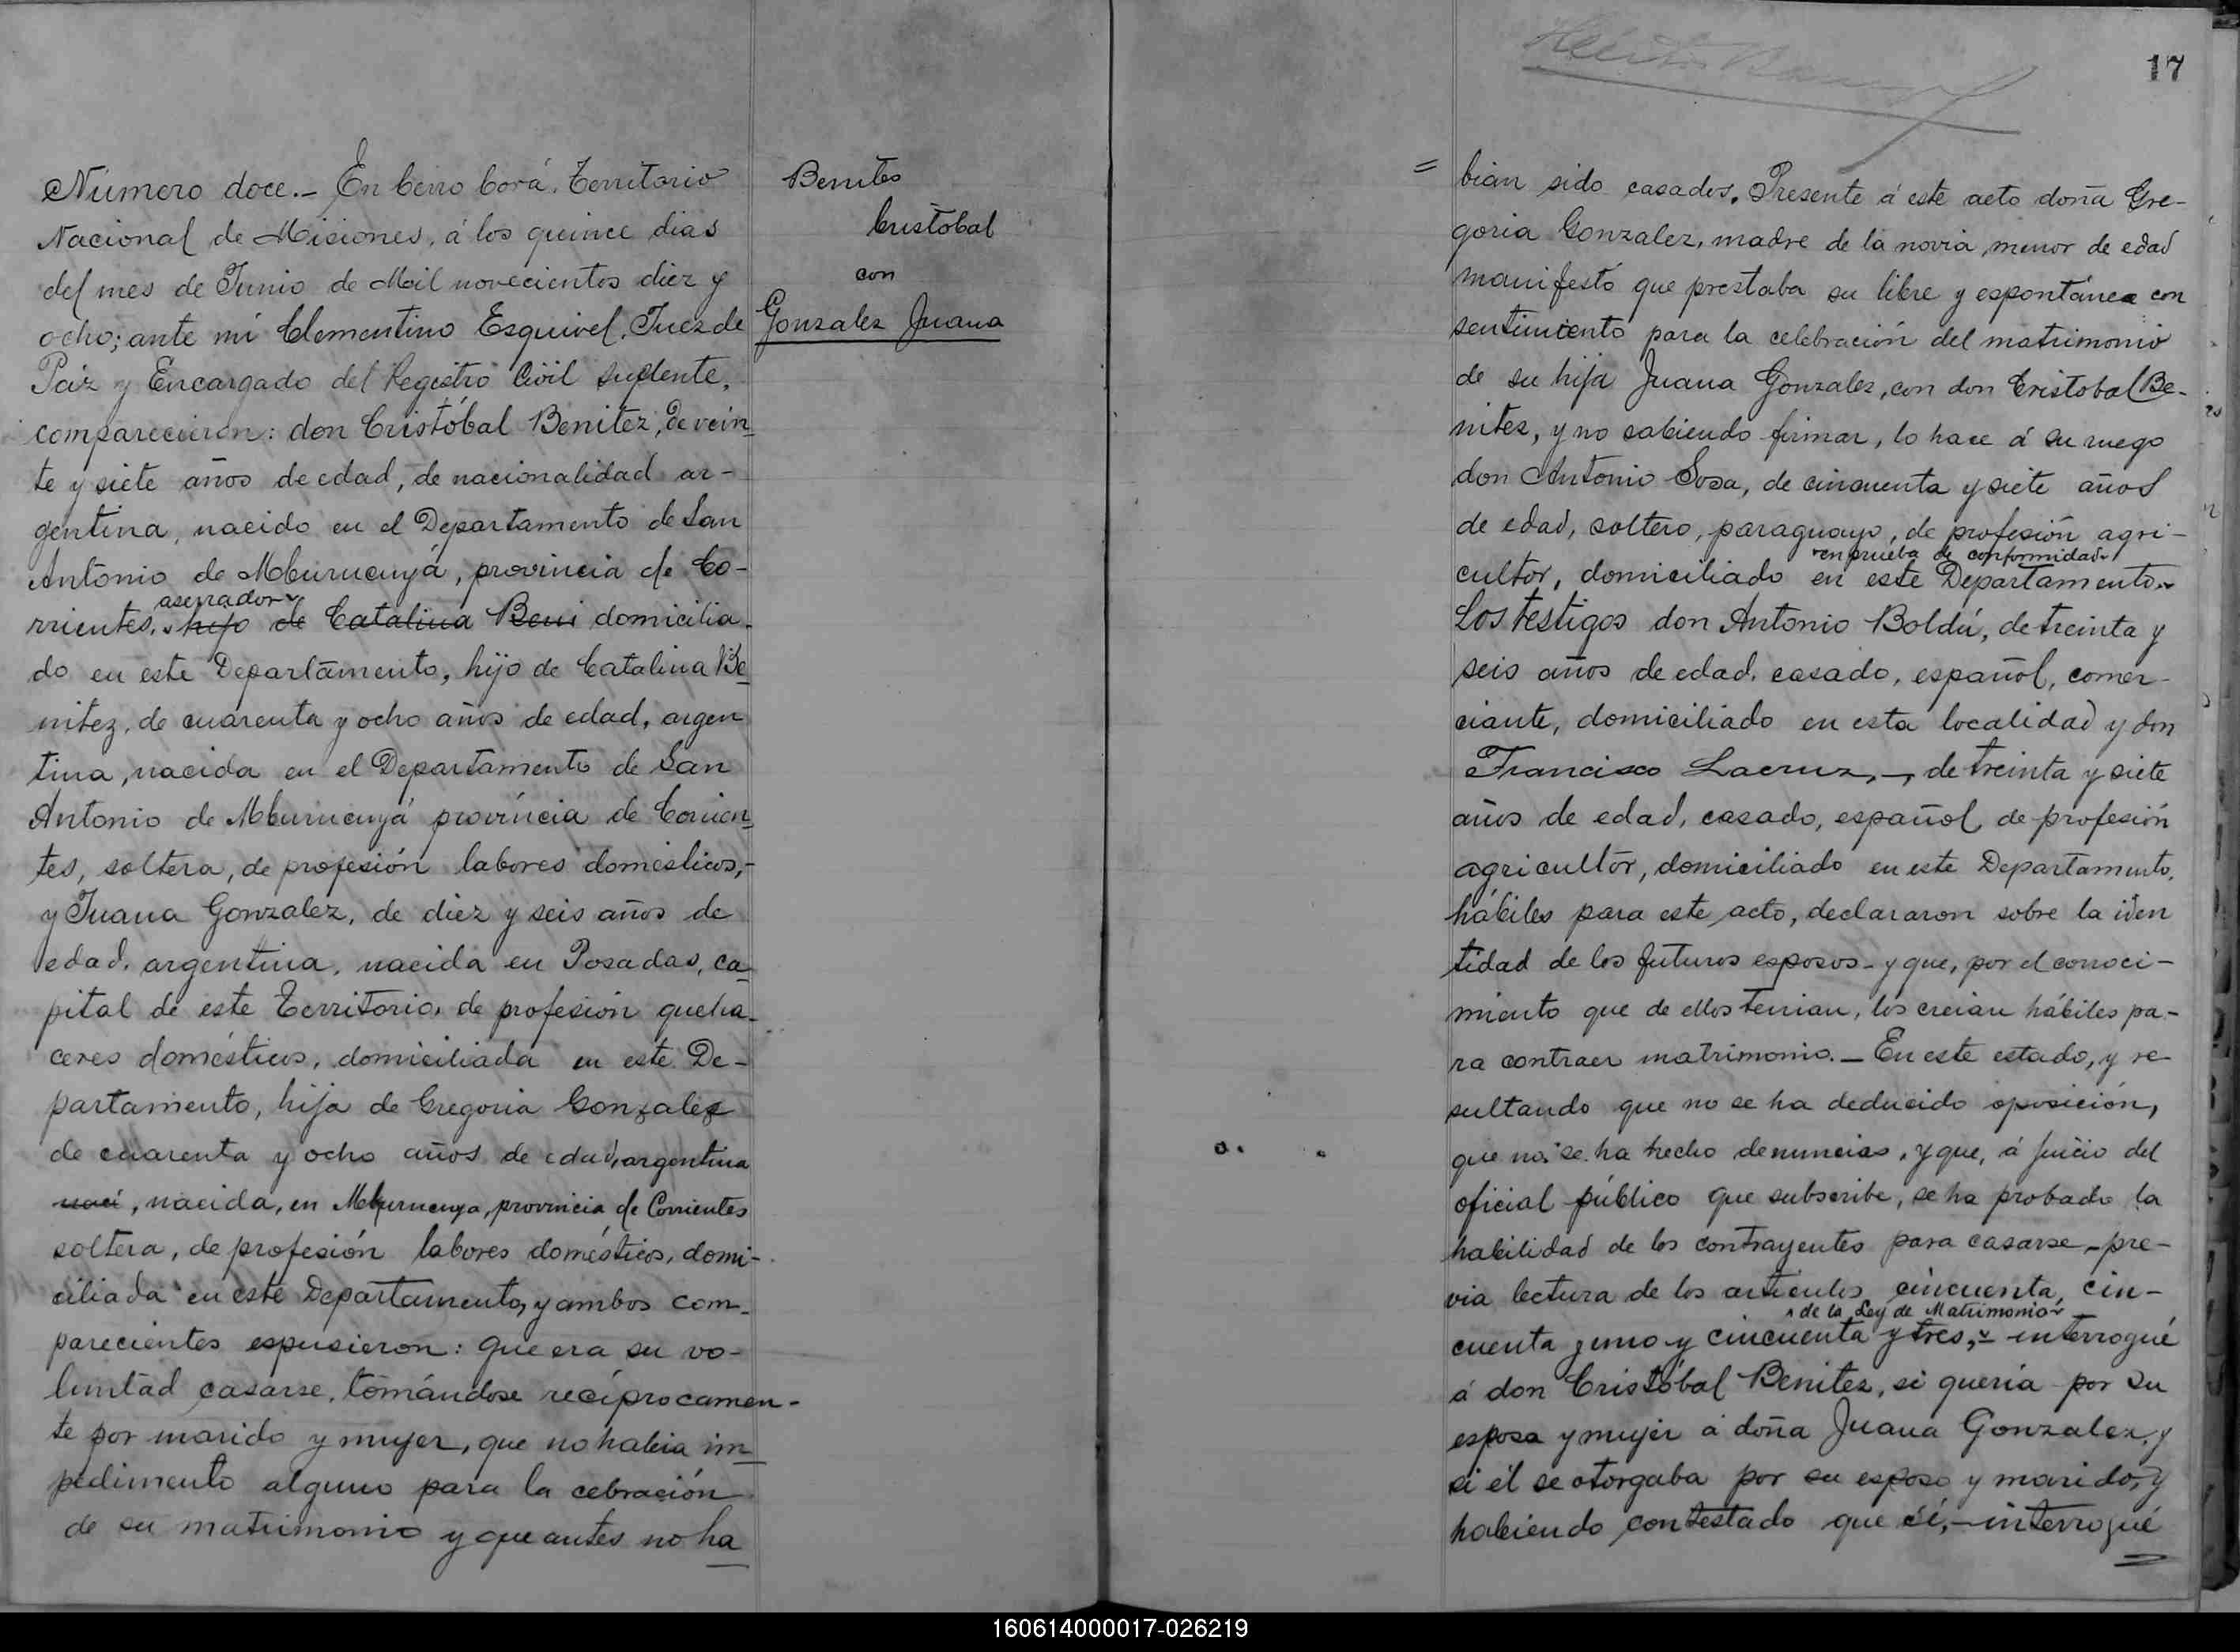 Número doce.- En Cerro Corá, Territorio
Nacional de Misiones, á los quince dias
del mes de Junio de Mil novecientos diez y
ocho; ante mi Clementino Esquivel, Juez de
Paiz y Encargado del Registro Civil suplente,
comparecieron: don Cristóbal Benitez, de vein-
te y siete años de edad, de nacionalidad ar-
gentina, nacido en el Departamento de San
Antonio de Mburucuyá, provincia de Co-
aserrador
rrientes, hijo de Catalina Beni domicilia-
do en este Departamento, hijo de Catalina Be
nitez, de cuarenta y ocho años de edad, argen
tina, nacida en el Departamento de San
Antonio de Mburucuyá província de Corrien-
tes, soltera, de profesión labores domésticos,-
y Juana Gonzalez, de diez y seis años de
edad, argentina, nacida en Posadas, ca
pital de este Territorio, de profesión queha-
ceres domésticos, domiciliada en este De-
partamento, hija de Gregoria Gonzalez
de cuarenta y ocho años de edad, argentina
naci, nacida, en Mburucuya, provincia de Corrientes
soltera, de profesión labores domésticos, domi-
ciliada en este Departamento, y ambos com-
parecientes espusieron: que era su vo-
luntad casarse, tomándose recíprocamen-
te por marido y mujer, que no habia im
pedimento alguno para la cebración
de su matrimonio y que antes no ha
Benites
Cristobal
con
Gonzalez Juana
17
= bian sido casados. Presente á este acto doña Gre-
goria Gonzalez, madre de la novia, menor de edad
manifestó que prestaba su libre y espontánea con
sentimiento para la celebración del matrimonio
de su hija Juana Gonzalez, con don Cristobal Be-
nites, y no sabiendo firmar, lo hace á su ruego
don Antonio Sosa, de cincuenta y siete años
de edad, soltero, paraguayo, de profesión agri-
en prueba de conformidad
cultor, domiciliado en este Departamento.
Los testigos don Antonio Boldú, de treinta y
seis años de edad, casado, español, comer-
ciante, domiciliado en esta localidad y don
Francisco Lacruz,-, de treinta y siete
años de edad, casado, español de profesión
agricultor, domiciliado en este Departamento,
hábiles para este acto, declararon sobre la iden
tidad de los futuros esposos- y que, por el conoci-
miento que de ellos tenian, los creian hábiles pa-
ra contraer matrimonio.- En este estado, y re-
sultando que no se ha deducido oposición,
que no se ha hecho denuncias, y que, á juicio del
oficial público que subscribe, se ha probado la
habilidad de los contrayentes para casarse,-pre-
via lectura de los artículos cincuenta, cin-
de la Ley de Matrimonio
cuenta y uno y cincuenta y tres, - interrogué
á don Cristóbal Benitez, si quería por su
esposa y mujer á doña Juana Gonzalez, y
si él se otorgaba por su esposo y marido, y
habiendo contestado que sí,- interrogué
160614000017-026219